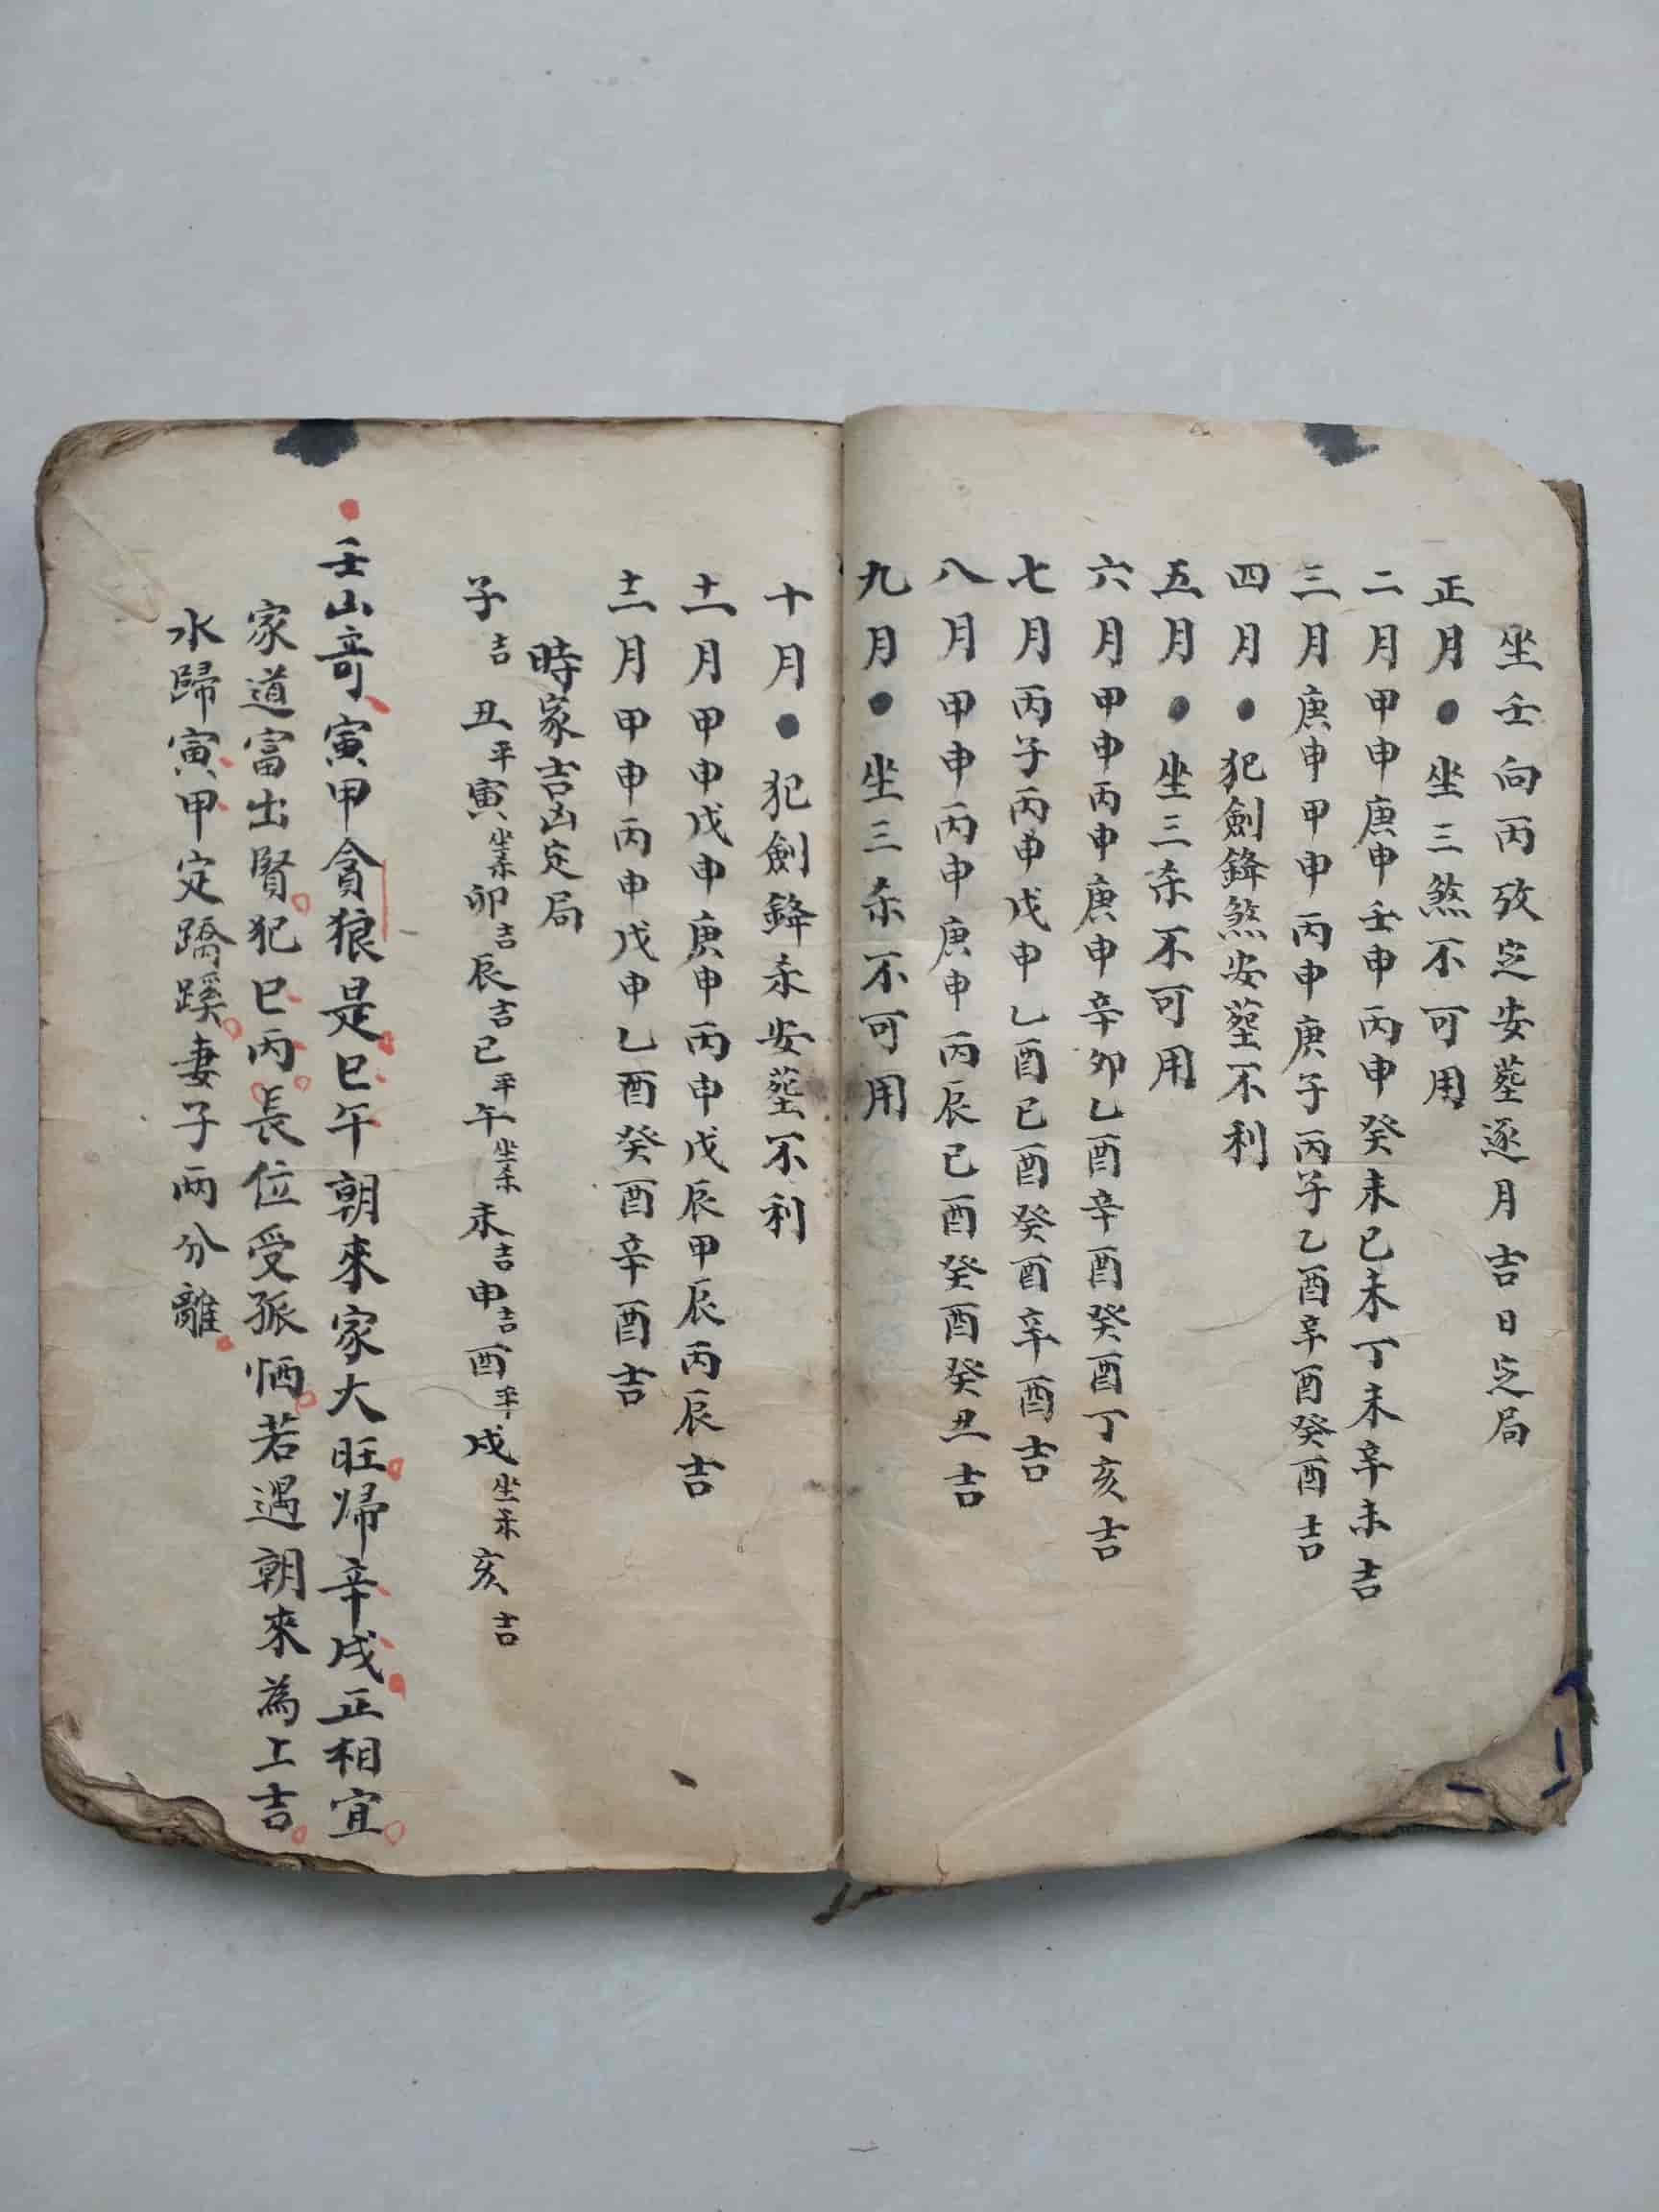 坐壬向丙攷定安葬逐月吉日定局
正月●坐三煞不可用
二月甲申庚申壬申丙申癸未己未丁未辛未吉
三月庚申甲申丙申庚子丙子乙酉辛酉癸酉吉
四月●犯劍鋒煞安葬不利
五月●坐三杀不可用
六月甲申丙申庚申辛卯乙酉辛酉癸酉丁亥吉
七月丙子丙申戊申乙酉己酉癸酉辛酉吉
八月甲申丙申庚申丙辰己酉癸酉癸丑吉
九月●坐三杀不可用
十月●犯劍鋒杀安葬不利
十一月甲申戊申庚申丙申戊辰甲辰丙辰吉
十二月甲申丙申戊申乙酉癸酉辛酉吉
時家吉凶定局
子吉丑平寅坐杀卯吉辰吉巳平午坐杀未吉申吉酉平戌坐杀亥吉
壬山竒寅甲貪狼是巳午朝來家大旺歸辛戌正相宜
家道富出賢犯巳丙長位受孤恓若遇朝來為上吉
水歸寅甲定蹻蹊妻子兩分離